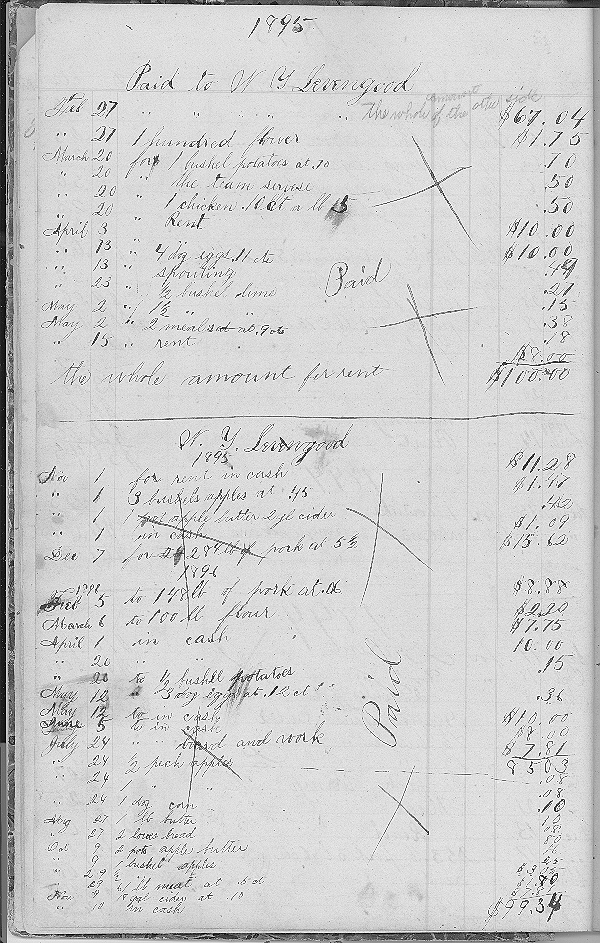 1895
Paid to W Y Levengood
Feb 27 " " " " The whole amount of the other side $67.04
" 27 1 hundred flower $1.75
March 20 for 1 bushel potatoes at .70 .70
" 20 " the team servise .50
" 20 " 1 chicken .10 ct a lb .50
" 20 " Rent $10.00
April 3 " $10.00
" 13 " 4 dog eggs .11 cts .44
" 13 " spouting .21
" 23 " ½ bushel lime .15
May 2 " 1½ " " .38
May 2 " 2 meal sed at .9 cts .18
" 15 " rent $8.00
the whole amount for rent $100.00
Paid
W. Y. Levengood
1895
Nov 1 for rent in cash $11.28
" 1 3 bushels apples at .45
" 1 1 apple butter 2 gl cider
" 1 in cash $1.09
Dec 7 for 284 lb of pork at 5½ $15.62
1896
Feb 5 to 148 lb of pork at .06 $8.88
March 6 to 100 lb flour $2.20
April 1 in cash $7.75
" 20 " " 10.00
" 20 to ½ bushell potatoes .15
May 12 " 3 dog eggs at .12 ct .36
May 12 to in cash $10.00
June 5 to in cash $8.00
July 24 " " board and work $7.81
8503
" 24 ½ pech apples .08
" 24 1 " " .08
" 24 1 dog corn .10
Aug 27 1 lb butter
" 27 2 loves bread
Oct 9 2 pots apple butter
" 9 1 bushel apples .25
" 29 lb meat at
Nov gal cider at .10
" 10 in cash
$99.34
Paid